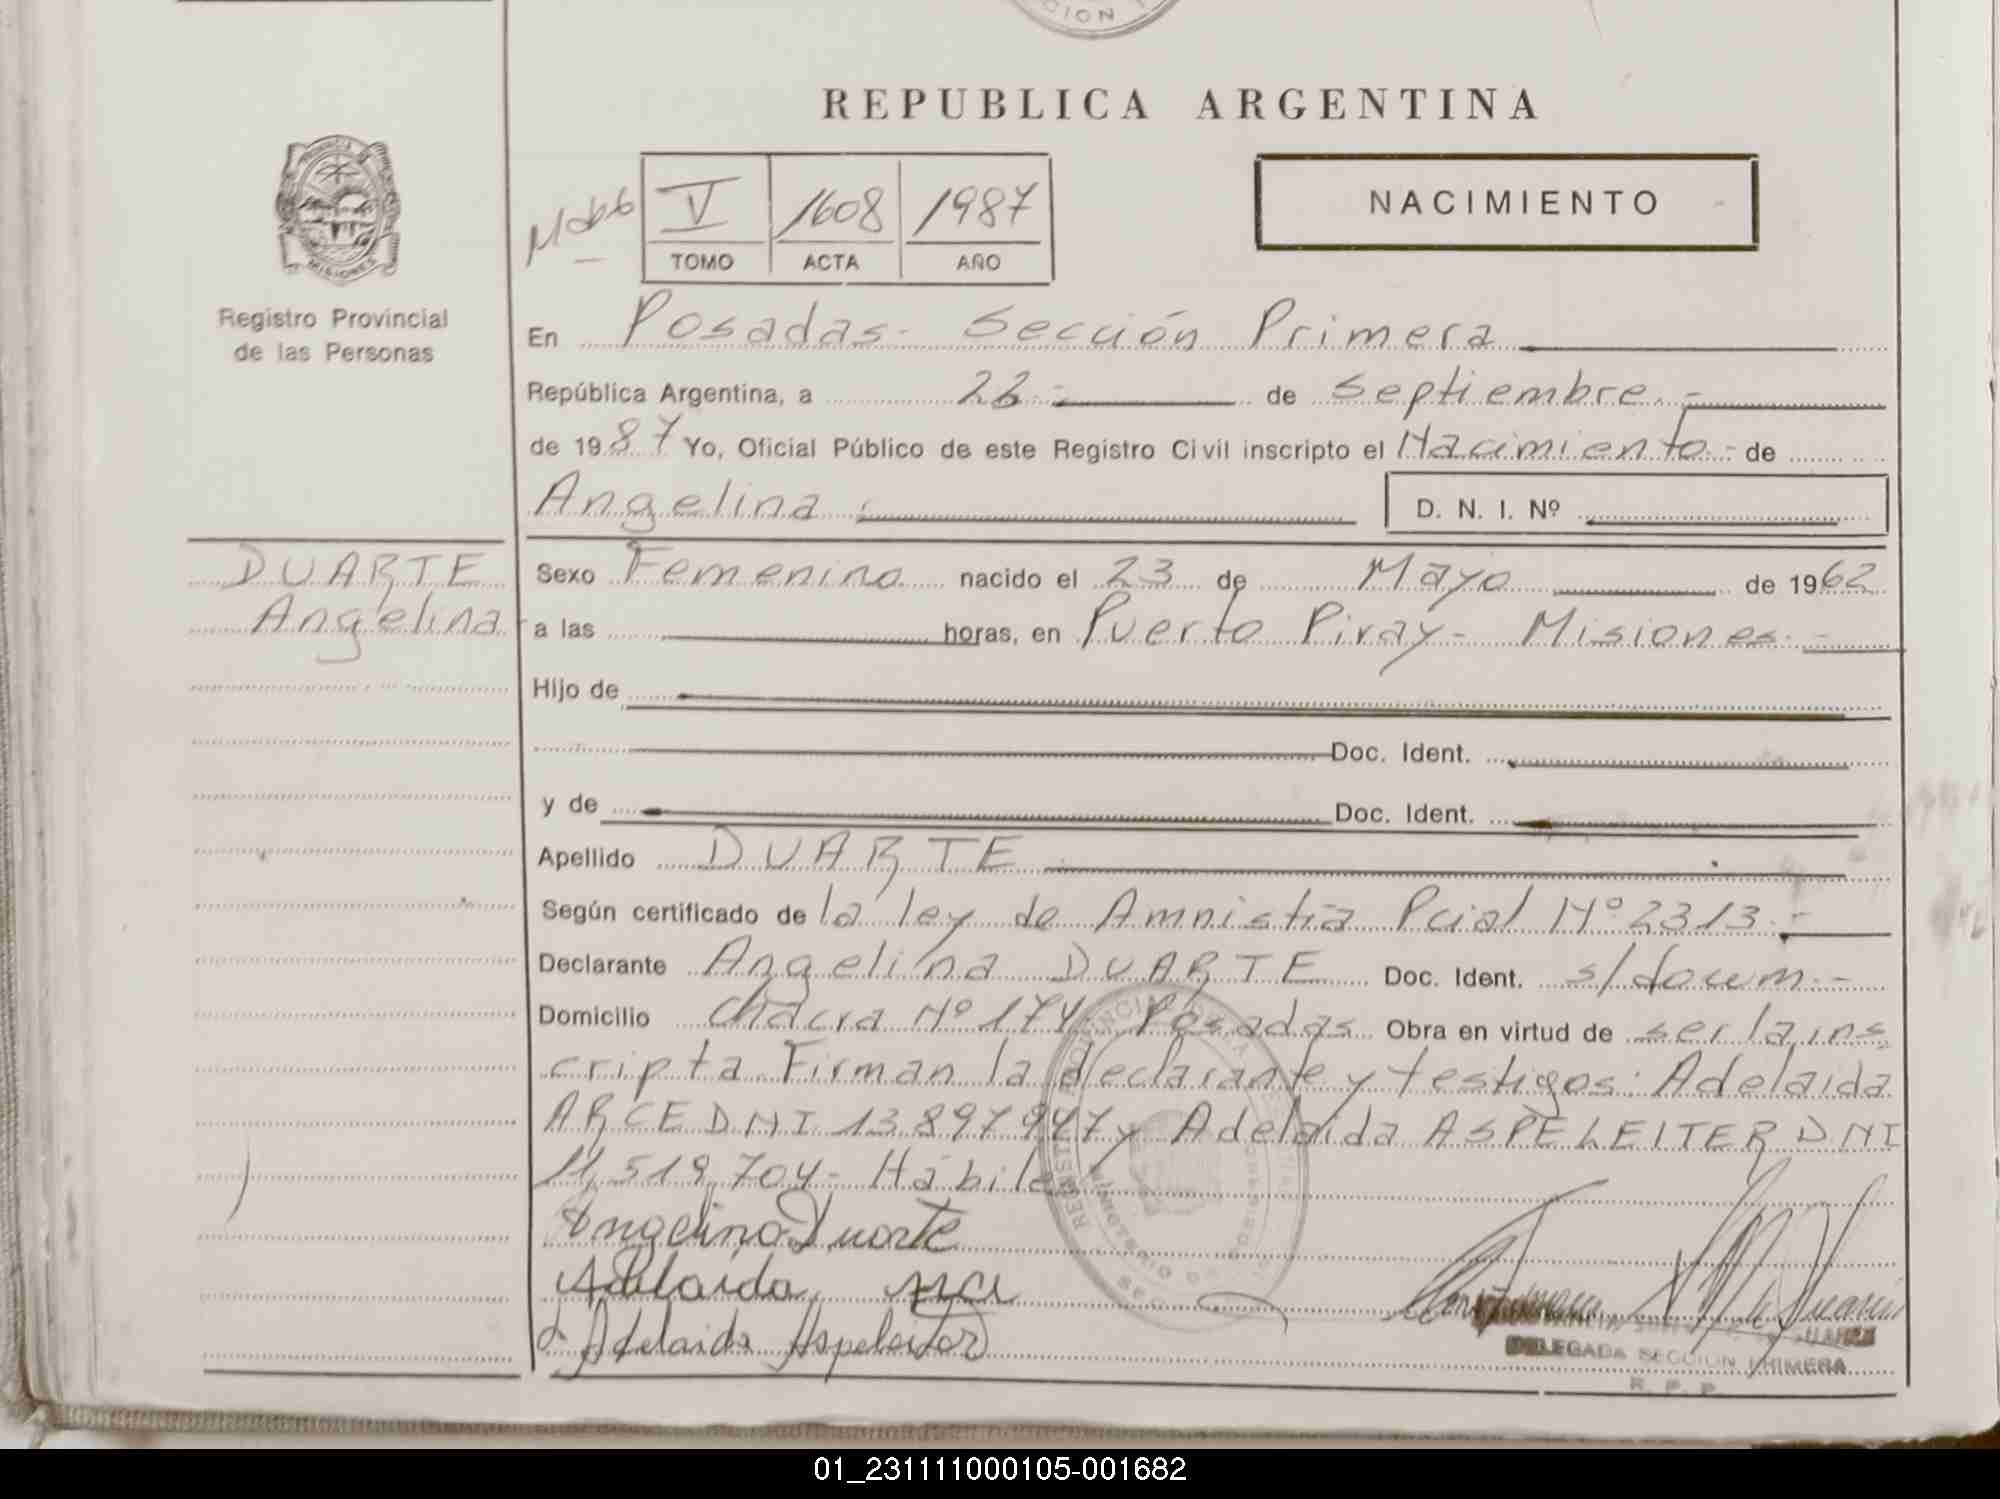 CION
REPUBLICA ARGENTINA
V 1608 1987
TOMO ACTA AÑO
NACIMIENTO
PROVINCIA DE
MISIONES
Registro Provincial
de las Personas
En Posadas- Sección Primera
República Argentina, a de Septiembre.-
de 1987 Yo, Oficial Público de este Registro Civil inscripto el Nacimiento.- de
Angelina D. N. I. Nº
DUARTE
Angelina
Sexo Femenino nacido el 23 de Mayo de 1962
a las horas, en Puerto Piray- Misiones.-
Hijo de
Doc. Ident.
y de Doc. Ident.
Apellido DUARTE
Según certificado de la ley de Amnistia Pcial Nº 2313.-
Declarante Angelina DUARTE Doc. Ident. s/docum.-
Domicilio Chacra Nº 174 Posadas Obra en virtud de ser la ins
cripta Firman la declarante y testigos: Adelaida
ARCE DNI 13897947 y Adelaida ASPELEITER DNI
11,519,704- Hábiles
Angelina Duarte
Adelaida Arce
Adelaida Aspeleiter
DELEGADA SECCION PRIMERA
R. P. P.
01_231111000105-001682